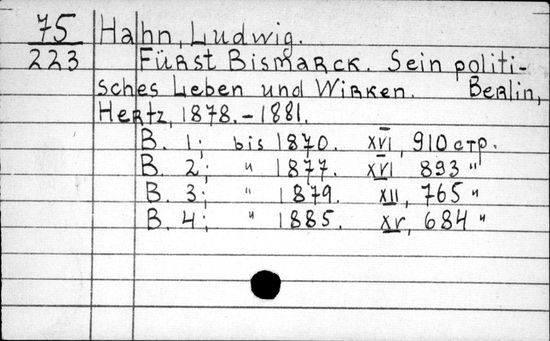 75 Hahn, Ludwig.
223 Fürst Bismarck. Sein politi-
sches Leben und Wirken. Berlin,
Hertz, 1878.-1881.
B. 1; bis 1870. XVI, 910 стр.
B. 2; " 1877. XVI 893 "
B. 3; " 1879. XII, 765 "
B. 4; " 1885. XV, 684 "